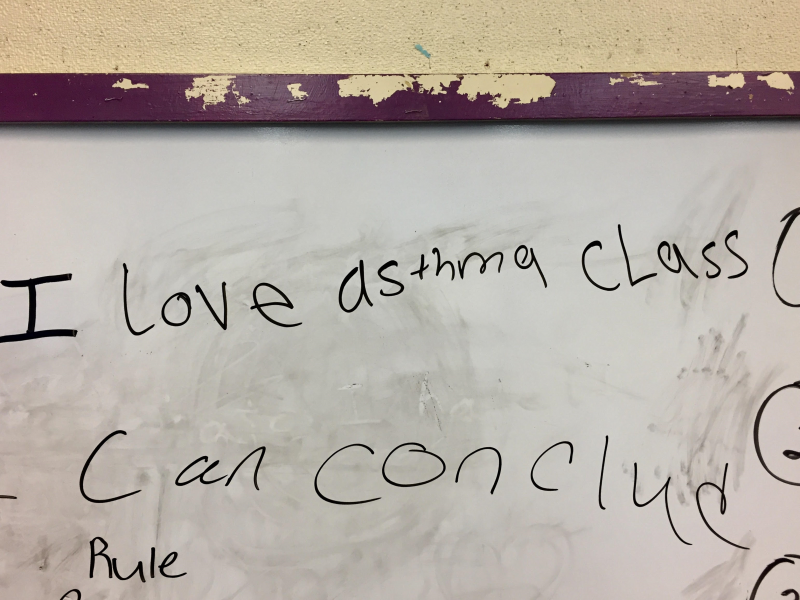 I love asthma class
Can conclud
Rule